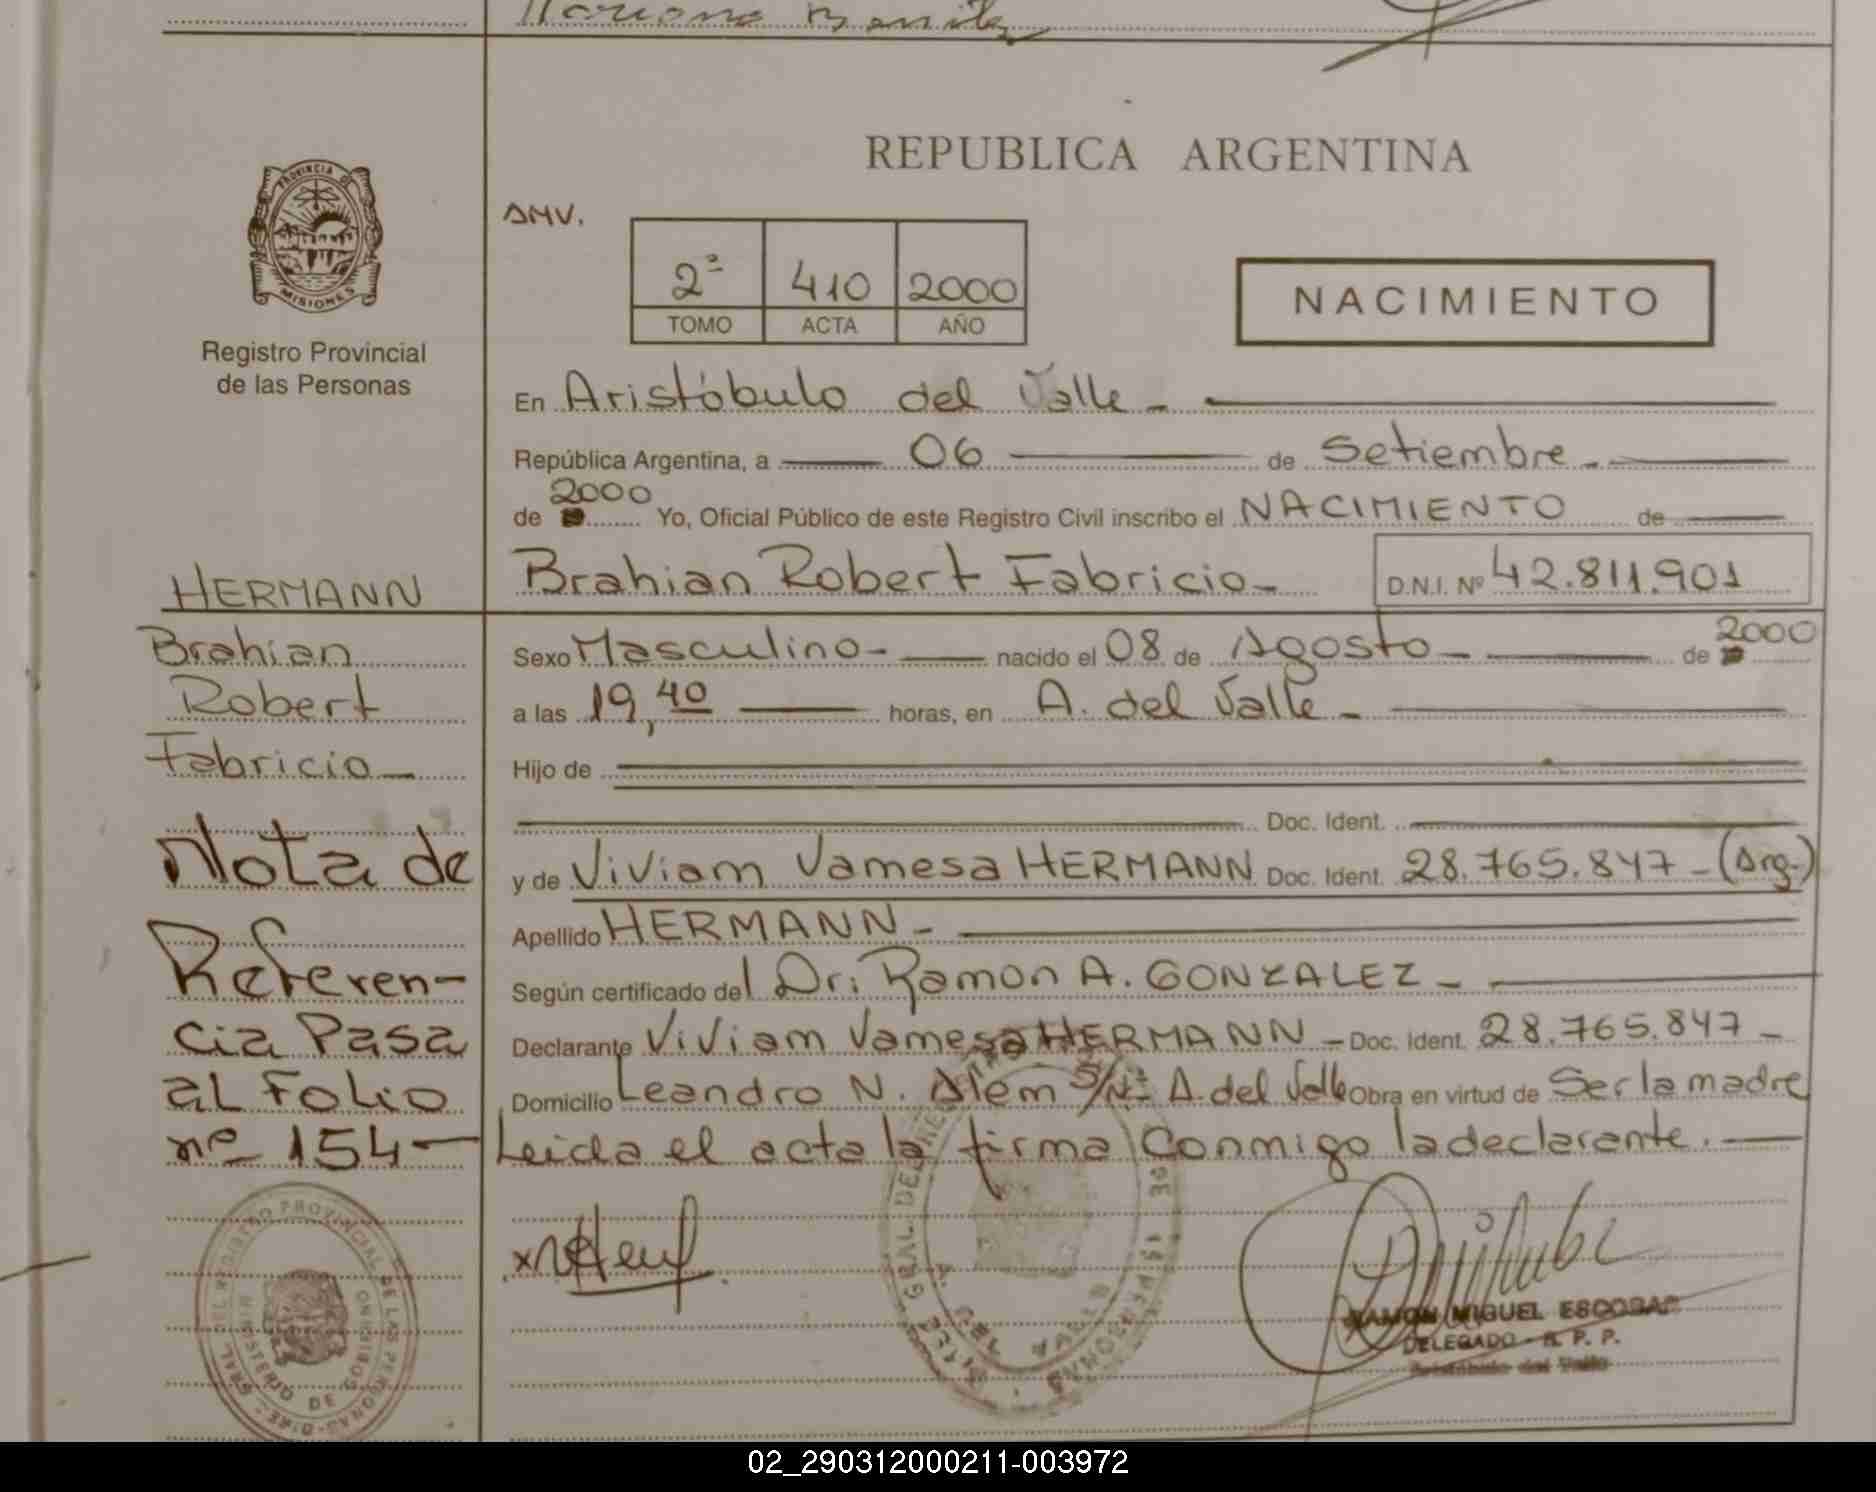 REPUBLICA ARGENTINA
PROVINCIA DE
MISIONES
Registro Provincial
de las Personas
DMV.
2º 410 2000
TOMO ACTA AÑO
NACIMIENTO
En Aristóbulo del Valle -
República Argentina, a 06 de Setiembre -
2000
de Yo, Oficial Público de este Registro Civil inscribo el NACIMIENTO de
Brahian Robert Fabricio - D.N.I. Nº 42.811.901
HERMANN
Brahian
Robert
Fabricio -
Sexo Masculino - nacido el 08 de Agosto - de 2000
a las 19,40 horas, en A. del Valle -
Hijo de
Doc. Ident.
y de Viviam Vamesa HERMANN Doc. Ident. 28.765.847 - (Arg.)
Apellido HERMANN -
Según certificado del Dr: Ramon A. GONZALEZ -
Declarante Viviam Vamesa HERMANN - Doc. Ident. 28.765.847 -
Domicilio Leandro N. Alem S/Nº A. del Valle Obra en virtud de Ser la madre
Leida el acta la firma Conmigo la declarante. -
Nota de
Referen-
cia Pasa
al Folio
nº 154 -
RAMON MIGUEL ESCOBAR
DELEGADO - R. P. P.
Aristóbulo del Valle
02_290312000211-003972